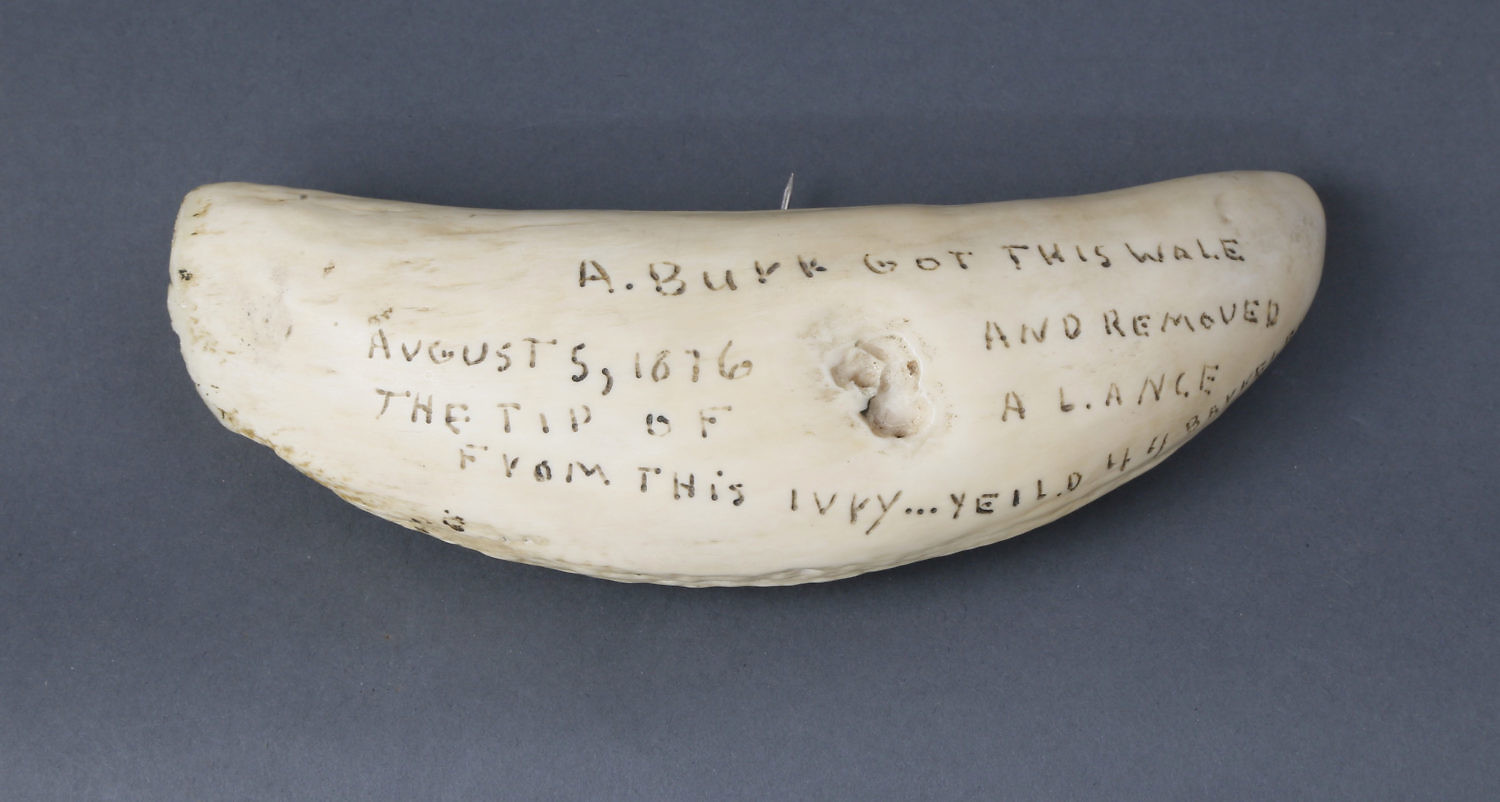 A. Burr GOT THIS WALE
AUGUST 5, 1876 AND REMOVED
THE TIP OF A LANCE
FrOM THiS IVRY...YEILD 44